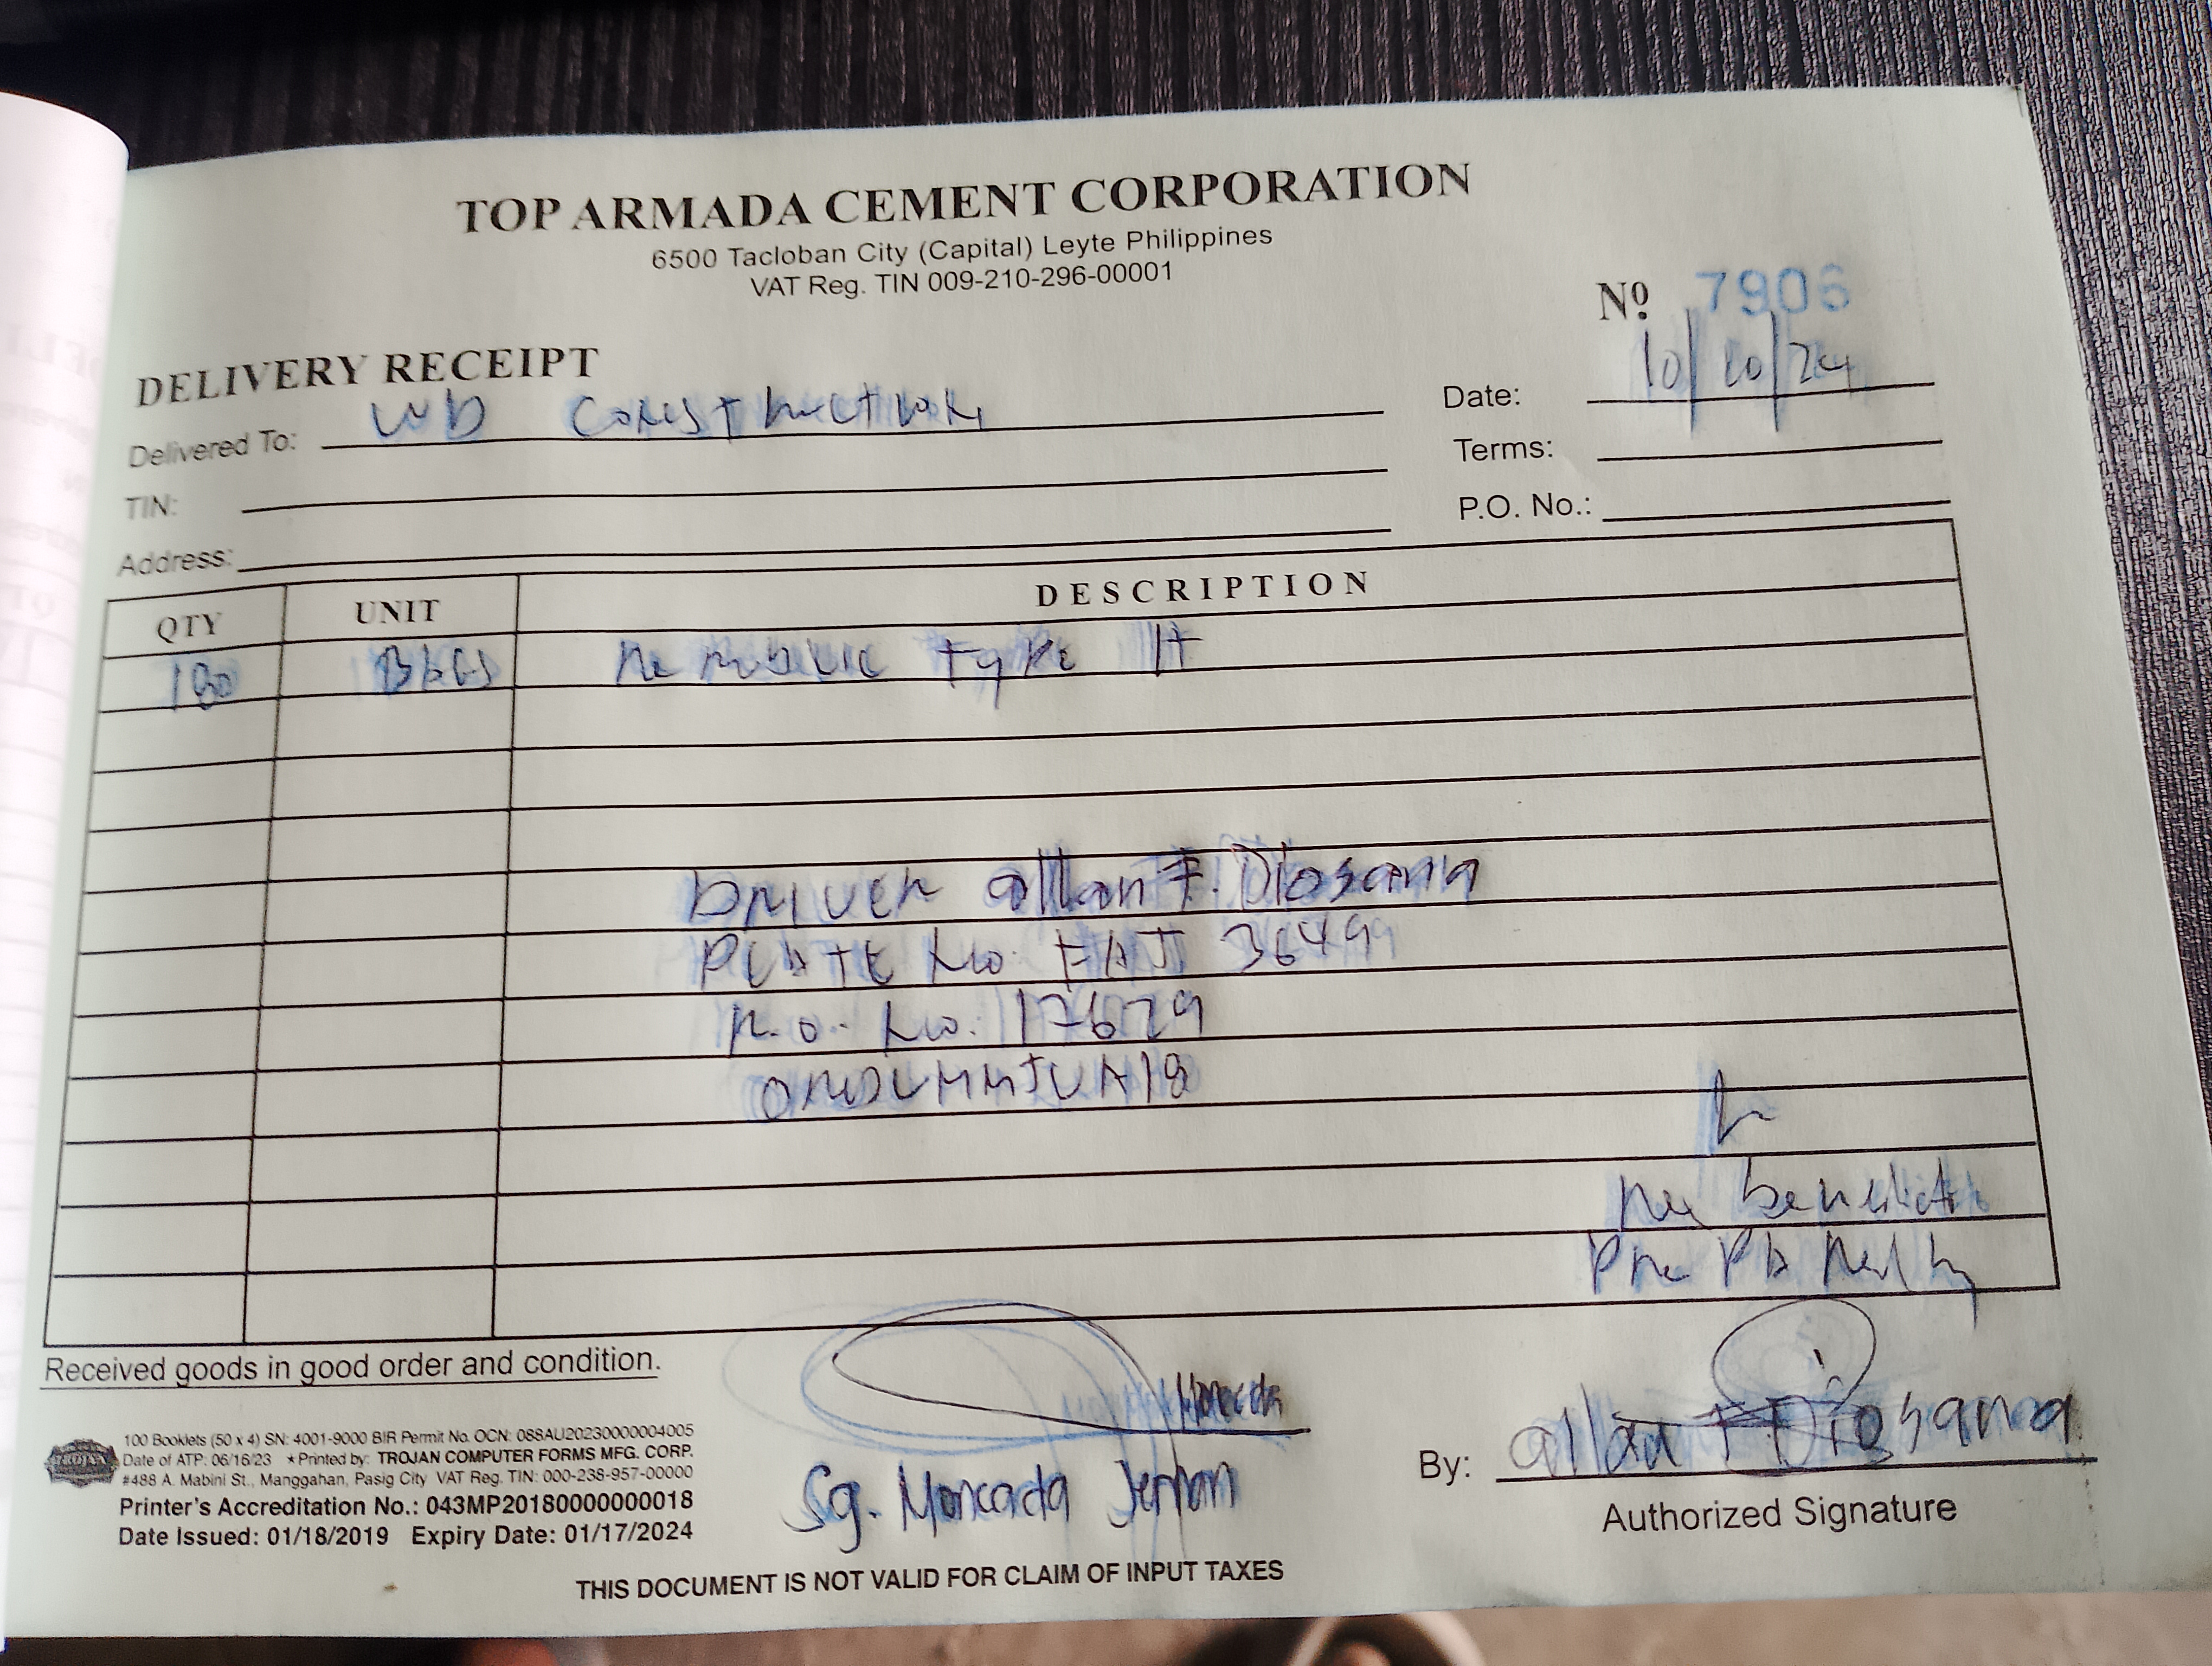 TOP ARMADA CEMENT CORPORATION
6500 Tacloban City (Capital) Leyte Philippines
VAT Reg. TIN 009-210-296-00001
Nº 7906
DELIVERY RECEIPT
Delivered To: WD Construction
Date: 10/10/24
TIN:
Terms:
Address:
P.O. No.:
QTY UNIT DESCRIPTION
BAGS Republic Type 1T
Driver allan F. Diosana
PLATE No. FAJ 36499
R.O. No. 17679
benedicto
Received goods in good order and condition.
Moncada
100 Booklets (50 x 4) SN: 4001-9000 BIR Permit No. OCN: 088AU20230000004005
Date of ATP: 06/16/23 ★Printed by: TROJAN COMPUTER FORMS MFG. CORP.
#488 A. Mabini St., Manggahan, Pasig City VAT Reg. TIN: 000-238-957-00000
Printer's Accreditation No.: 043MP20180000000018
Date Issued: 01/18/2019 Expiry Date: 01/17/2024
Sg. Moncada
By: allan F Diosana
Authorized Signature
THIS DOCUMENT IS NOT VALID FOR CLAIM OF INPUT TAXES